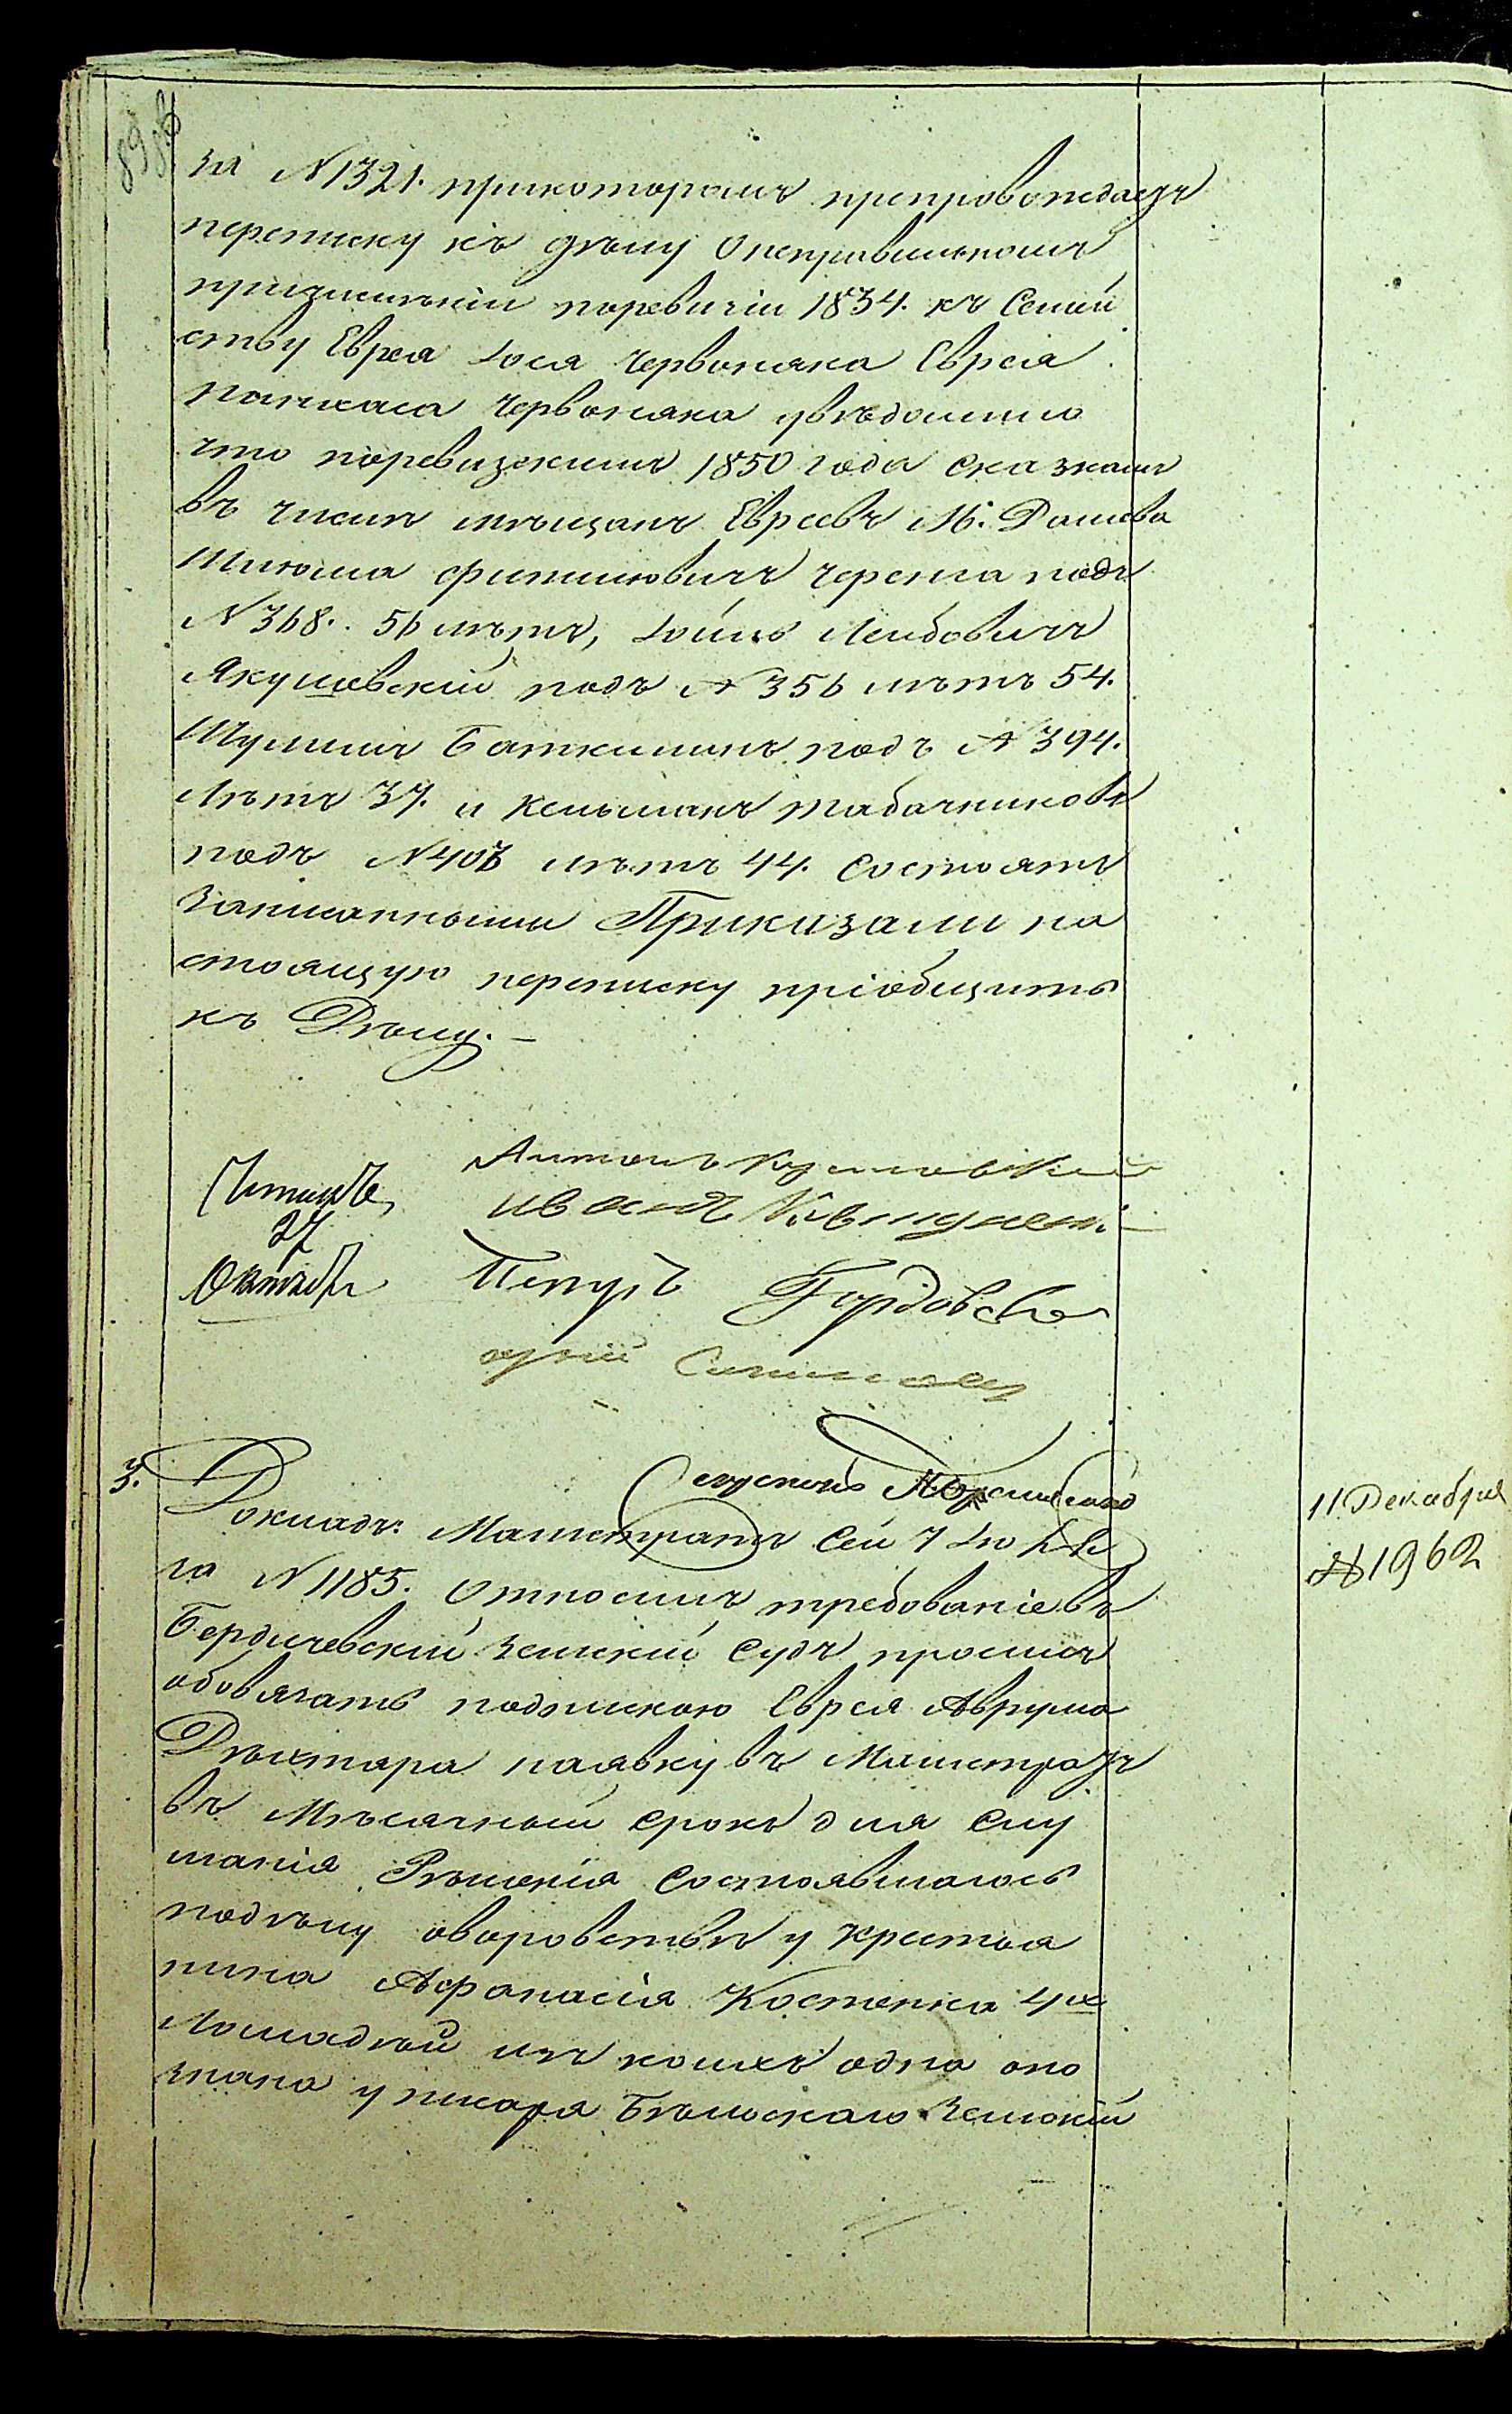 за N 1321. прикоторомъ препровождая
переписку къ дѣлу Онеправильномъ
причисленіи поревизіи 1834. къ Семей
ству Еврея Іося Червоняка Еврея
Пинхаса Червоняка увѣдомило
что поревизскимъ 1850 года сказкамъ
въ числѣ мѣщанъ Евреевъ М. Дашева
подъ
N 368. 56 лѣтъ, Лейбовичъ
Якушевскій подъ N 356 лѣтъ 54.
Шулимъ подъ N 394.
Лѣтъ 37. и Кельманъ Табачниковъ
подъ N 403 лѣтъ 44. состоятъ
Записанными Приказали на
стоящую переписку пріобщить
къ Дѣлу. –
Антонъ
Читалъ
Иванъ
27
Октября Петръ

3. Докладъ: Магистратъ Сей 7 Іюля
за N 1185. Относилъ требованіе въ
Бердичевскій Земскій Судъ просилъ
обовязать подпискою Еврея Аврума
Дѣхтяра наявку въ Магистратъ
въ Мѣсячный срокъ для Слу
шанія Рѣшенія состоявшагось
подѣлу оворовствѣ у крестья
нина Афанасія Костенка 4хъ
Лошадѣй изъ коихъ одна опо
знана у писаря Бѣльскаго Земскій
11 Декабря
N 1962